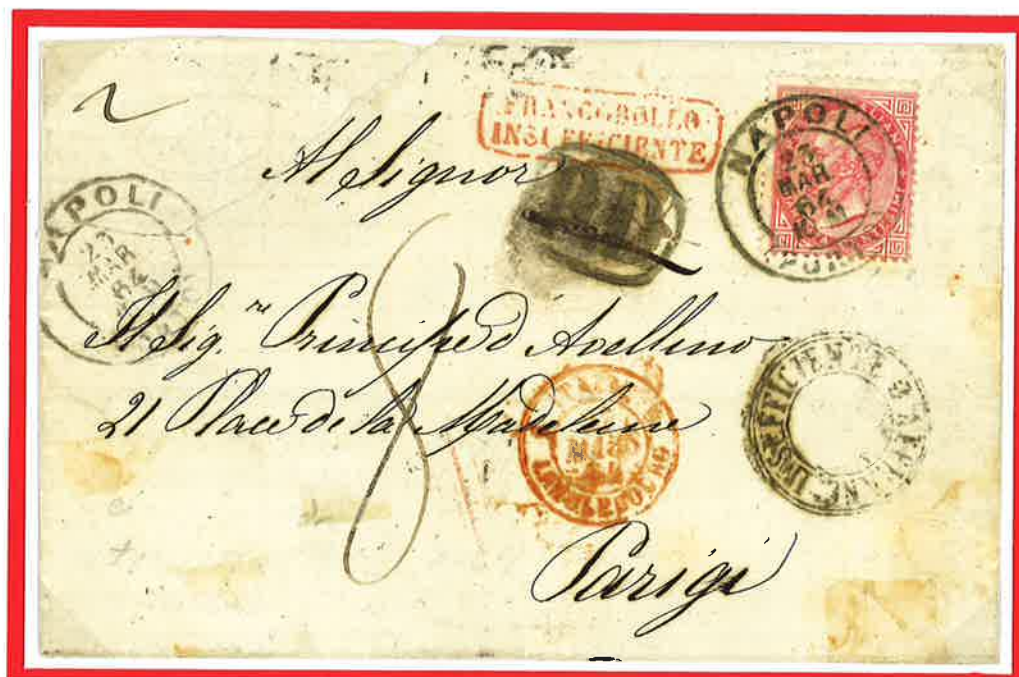 2
FRANCOBOLLO
INSUFFICIENTE
NAPOLI
23
MAR
64
PORTO
Al Signor
NAPOLI
23
MAR
64
Il Sig.re Principe d'Avellino
21 Place de la Madeleine
8
LANSLEBOURG
AFFRANC. INSUFFICIENTE
Parigi